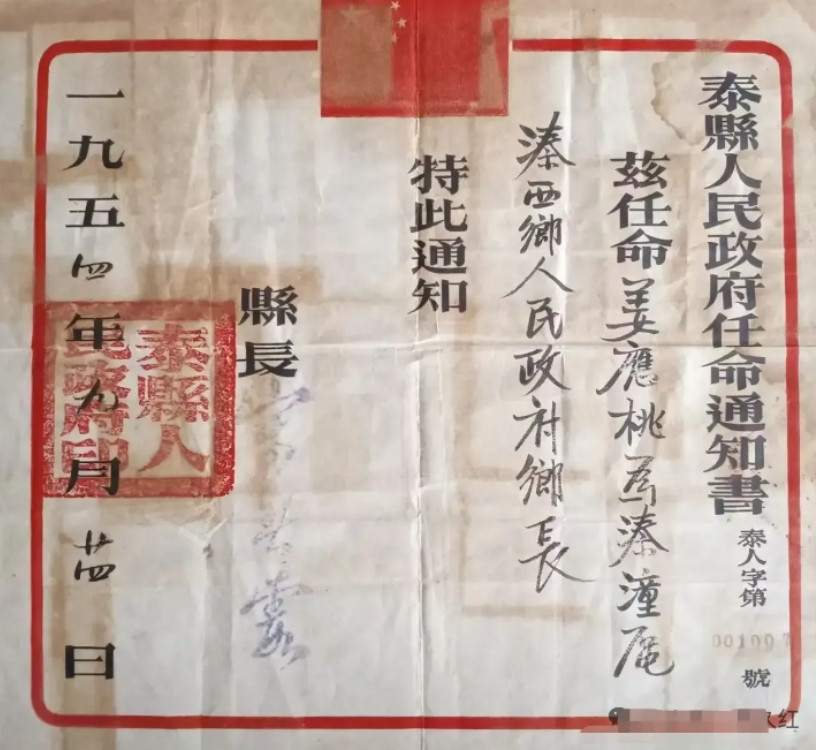 泰縣人民政府任命通知書
泰人字第001097號
茲任命姜應桃為溱潼區
溱西鄉人民政府鄉長
特此通知
縣長
一九五四年九月廿四日
泰縣人
民政府印
红